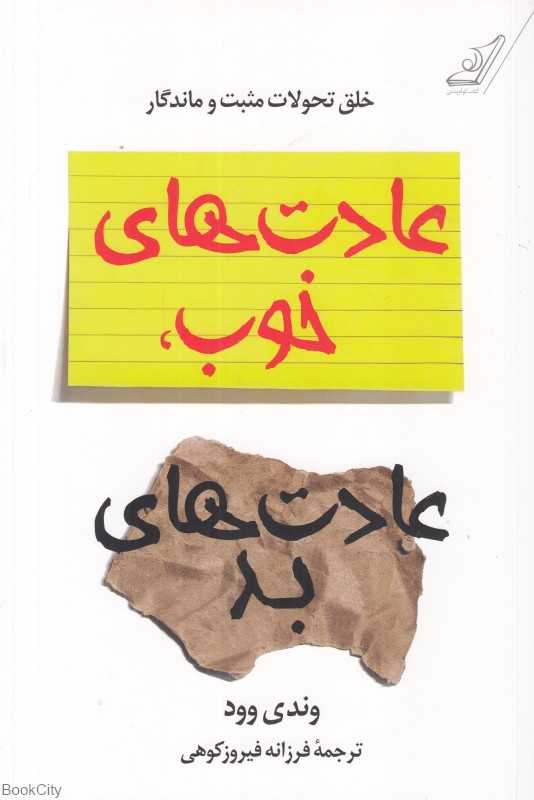 خلق تحولات مثبت و ماندگار
عادت‌های
خوب،
عادت‌های
بد
وندی وود
ترجمهٔ فرزانه فیروزکوهی
BookCity